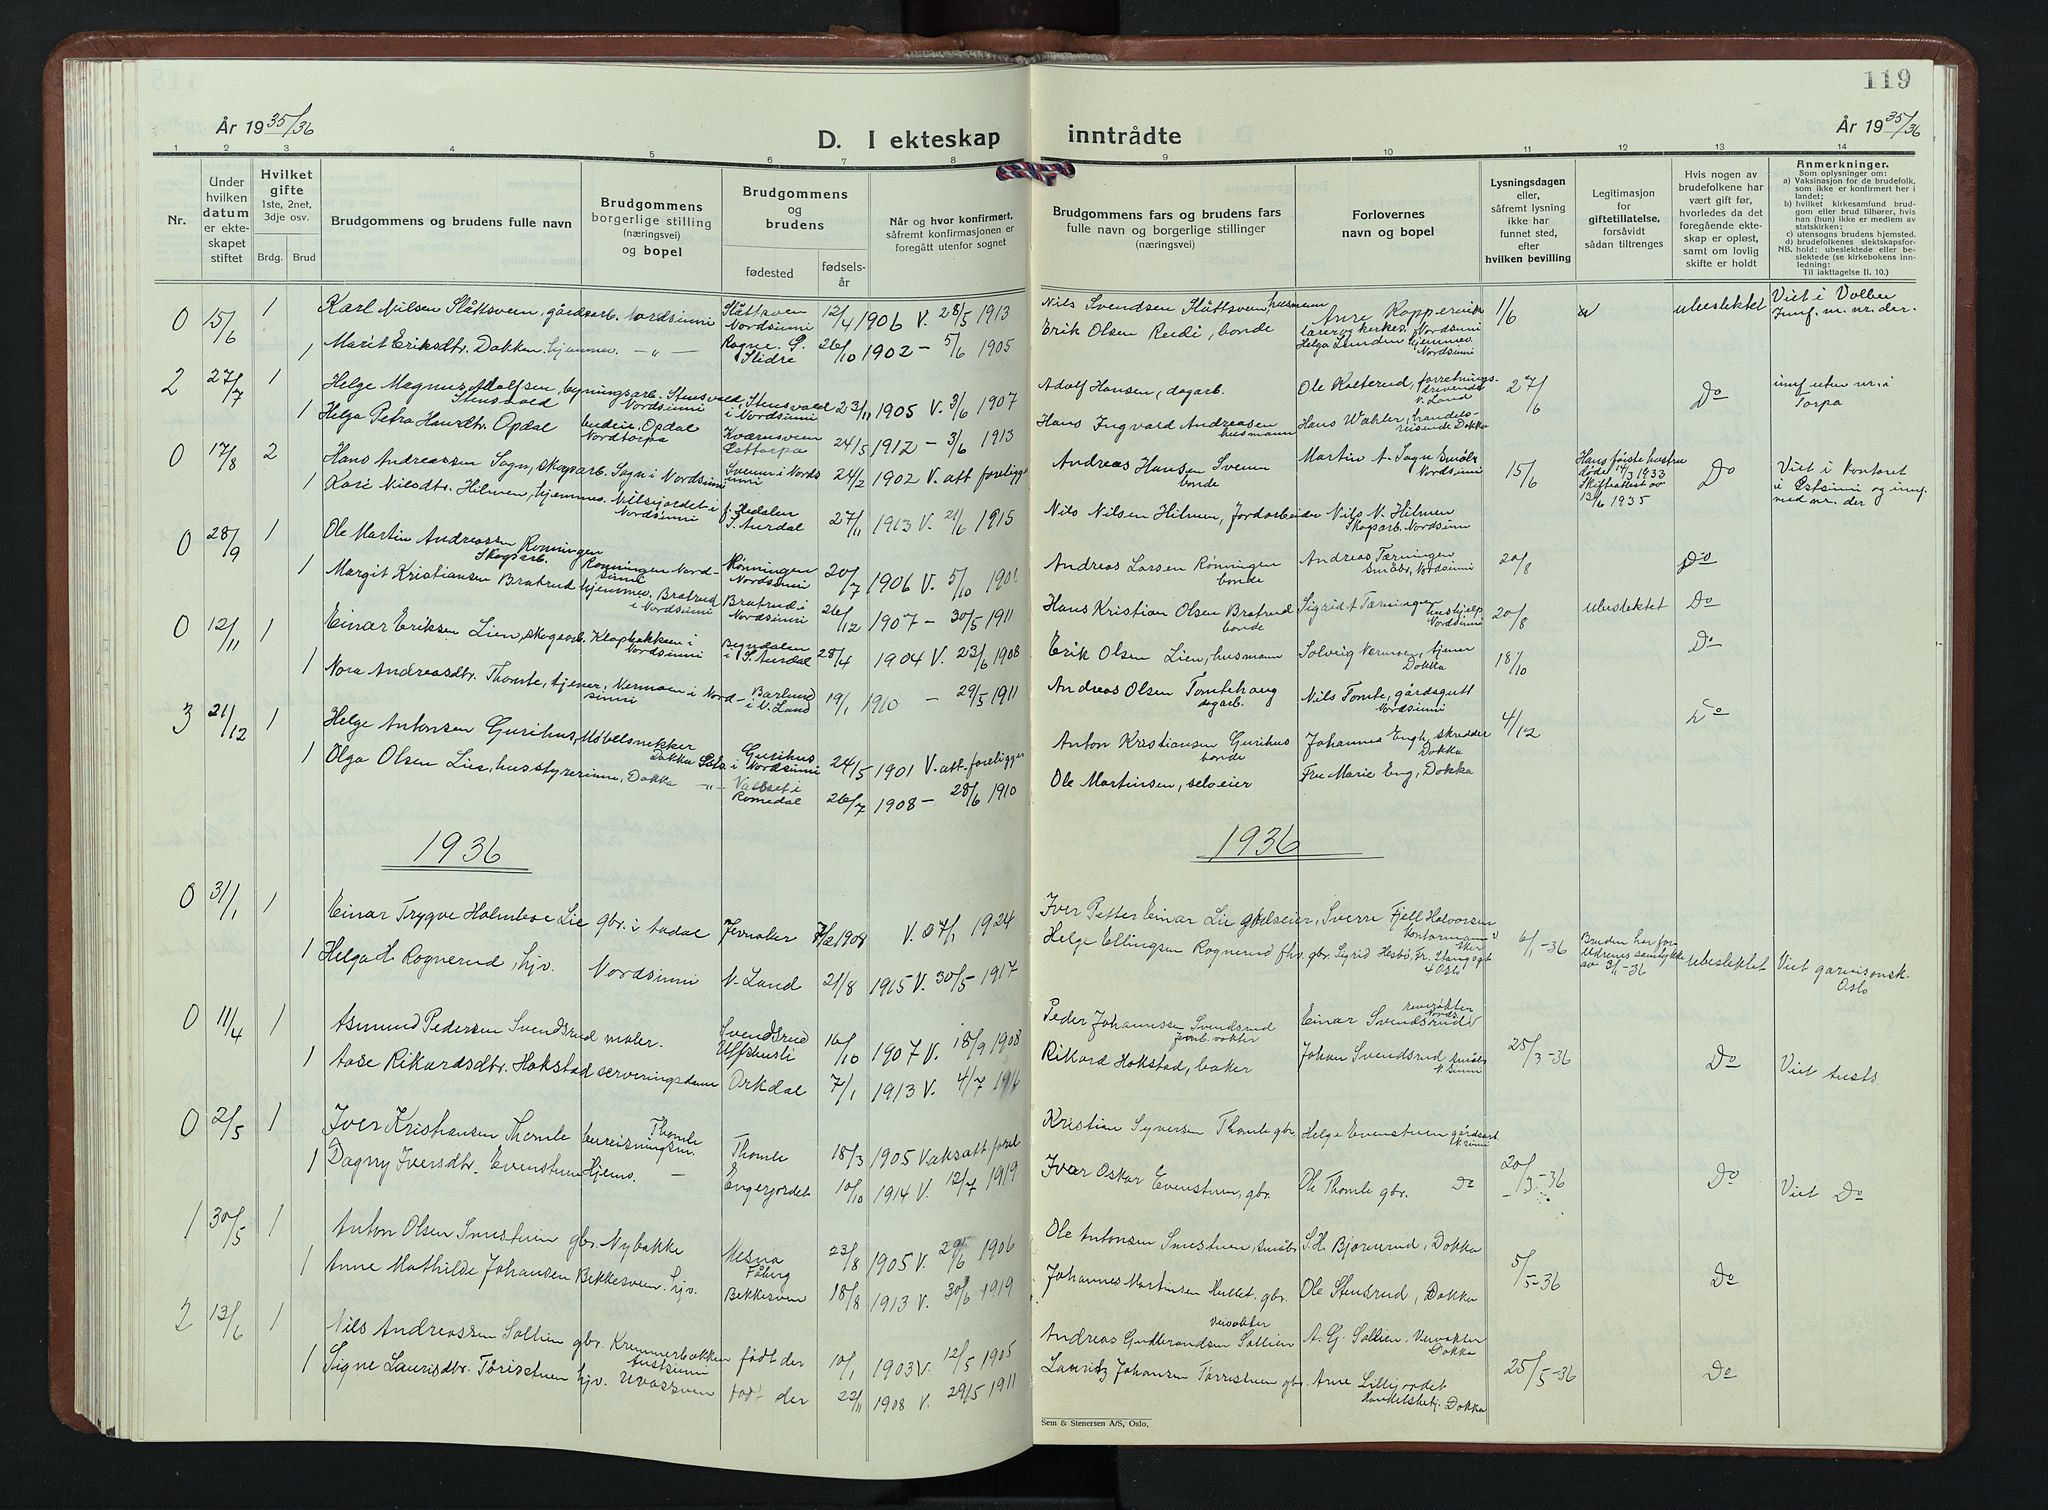 119
År 19 35/36
D. I ekteskap inntrådte
År 19 35/36
1 2 3 4 5 6 7 8 9 10 11 12 13 14
Nr.
Under hvilken datum er ekteskapet stiftet
Hvilket gifte 1ste, 2net, 3dje osv.
Brdg. Brud
Brudgommens og brudens fulle navn
Brudgommens borgerlige stilling (næringsvei) og bopel
Brudgommens og brudens
fødested
fødsels-år
Når og hvor konfirmert, såfremt konfirmasjonen er foregått utenfor sognet
Brudgommens fars og brudens fars fulle navn og borgerlige stillinger (næringsvei)
Forlovernes navn og bopel
Lysningsdagen eller, såfremt lysning ikke har funnet sted, efter hvilken bevilling
Legitimasjon for giftetillatelse, forsåvidt sådan tiltrenges
Hvis nogen av brudefolkene har vært gift før, hvorledes da det foregående ekteskap er opløst, samt om lovlig skifte er holdt
Anmerkninger.
Som oplysninger om:
a) Vaksinasjon for de brudefolk, som ikke er konfirmert her i landet;
b) hvilket kirkesamfund brudgom eller brud tilhører, hvis han (hun) ikke er medlem av statskirken;
c) utensogns brudens hjemsted.
d) brudefolkenes slektskapsforhold: ubeslektede eller beslektede (se kirkebokens innledning:
NB.
Til iakttagelse II. 10.)
0 15/6 1 Karl Nilsen Slåttsveen, gårdsarb. Nordsinni Slåttsveen Nordsinni 12/4 1906 V. 28/5 1913 Nils Svendsen Slåttsveen, husmann 1/6 ubeslektet Viet i Volbu
1 Marit Eriksdtr. Dokken, hjemmev. Rogne, Ø. Slidre 26/10 1902 – 5/6 1905 Erik Olsen Reidi, bonde lærer og kirkes. Nordsinni Helga Lunden hjemmev. Nordsinni
2 27/7 1 Helge Magnus Adolfsen Stensvold, bygningsarb. Stensvold, Nordsinni Stensvold i Nordsinni 23/11 1905 V. 3/6 1907 Adolf Hansen, dagarb. Ole Kolterud, forretningsdrivende N. Land 27/6 Do innf. uten nr. i Torpa
1 Helga Petra Hansdtr. Opdal budeie, Opdal Nordtorpa Kværnsveen Østtorpa 24/5 1912 – 3/6 1913 Hans Ingvald Andreasen husmann Hans Wahler, handelsreisende Dokka
0 17/8 2 Hans Andreassen Sogn, skogsarb. Sogn i Nordsinni Sveum i Nordsinni 24/2 1902 V. att. foreligger Andreas Hansen Sveum bonde Martin A. Sogn Småbr. Nordsinni 15/6 Hans første hustru døde 14/3 1933 Skifteattest av 13/6 1935 Do Viet i kontoret i Østsinni og innf. med nr. der
1 Kari Nilsdtr. Hilmen, hjemmev. Nilsjordet i Nordsinni f. Hedalen S. Aurdal 27/11 1913 V. 21/6 1915 Nils Nilsen Hilmen, Jordarbeider Nils N. Hilmen Skogsarb. Nordsinni
0 28/9 1 Ole Martin Andreassen Rønningen Skogsarb. Rønningen Nordsinni Rønningen Nordsinni 20/7 1906 V. 5/10 Andreas Larsen Rønningen bonde Andreas Tærningen småbr. Nordsinni 20/8 Do
1 Margit Kristiansen Bratrud hjemmev. Bratrud i Nordsinni Bratrud i Nordsinni 26/12 1907 – 30/5 1911 Hans Kristian Olsen Bratrud bonde Sigrid A. Tærningen hushjelp Nordsinni 20/8 ubeslektet Do
0 12/11 1 Einar Eriksen Lien, skogsarb. Klopbakken i Nordsinni Begndalen i S. Aurdal 28/4 1904 V. 23/6 1908 Erik Olsen Lien, husmann Solveig Nermoen, tjener Dokka 18/10 Do
1 Nora Andreasdtr. Thomte, tjener, Nermoen i Nordsinni Barlund i N. Land 19/1 1910 – 29/5 1911 Andreas Olsen Tomtehaug dagarb. Nils Tomte, gårdsgutt Nordsinni
3 21/12 1 Helge Antonsen Gurihus, Møbelsnekker Dokka Gurihus i Nordsinni 24/5 1901 V. att. foreligger Anton Kristiansen Gurihus bonde Johannes Engh, skredder Dokka 4/12 Do
1 Olga Olsen Lie, husstyrerinne, Dokka Vallset i Romedal 26/7 1908 – 28/6 1910 Ole Martinsen, selveier Fru Marie Eng, Dokka
1936 1936
0 31/1 1 Einar Trygve Holmboe Lie gbr. i Aadal Jevnaker 1908 V. 1924 Iver Petter Einar Lie godseier, Sverre Fjell Halvorsen kontormann 6/1-36 Bruden har foreldrenes samtykke av 3/1-36 ubeslektet Viet garnisonsk. Oslo
1 Helga H. Rognerud, hjv. Nordsinni N. Land 21/8 1915 V. 30/5 1917 Helge Ellingsen Rognerud fhv. gbr. Sigrid Hesbø, Fr. Stangsgt 4 Oslo
0 11/4 1 Asmund Pedersen Svendsrud maler. Svendsrud 16/10 1907 V. 18/9 1908 Peder Johannessen Svendsrud Jernb. vokter Einar Svendsrud 25/3-36 Do Viet Austs.
1 Aase Rikardsdtr. Hokstad serveringsdame Orkdal 7/1 1913 V. 4/7 Rikard Hokstad, baker Johan Svendsrud småbr. N. Sinni
0 2/5 1 Iver Kristiansen Thomle bureisningsm. Thomle Thomle 18/3 1905 Vaksatt forel Kristian Syversen Thomle gbr. Helge Evenstuen gårdsarb N. sinni 20/3-36 Do Viet Do
1 Dagny Iversdtr. Evenstuen Hjemv. Engerjordet 10/10 1914 V. 12/7 1919 Ivar Oskar Evenstuen, gbr. Ole Thomle gbr. Do
1 30/5 1 Anton Olsen Smestuen gbr. Nybakke Mesna Fåberg 23/8 1905 V. 29/6 1906 Ole Antonsen Smestuen, småbr. S. H. Bjørnerud, Dokka 5/5-36 Do
1 Anne Mathilde Johansen Bekkesveen. hjv. Bekkesveen 18/8 1913 V. 30/6 1919 Johannes Martinsen Hullet. gbr. Ole Stensrud, Dokka
2 13/6 1 Nils Andreassen Sollien gbr. Kremmerbakken Austsinni født der 10/1 1903 V. 12/5 1905 Andreas Gudbrandsen Sollien veivokter A. G. Sollien. Veivokter Dokka 25/5-36 Do
1 Signe Laurisdtr. Tøristuen hjv. Uvassveen født der 22/11 1908 V. 29/5 1911 Lauritz Johansen Tørristuen gbr. Arne Lillejordet Handelsbetj. Dokka
Sem & Stenersen A/S, Oslo.